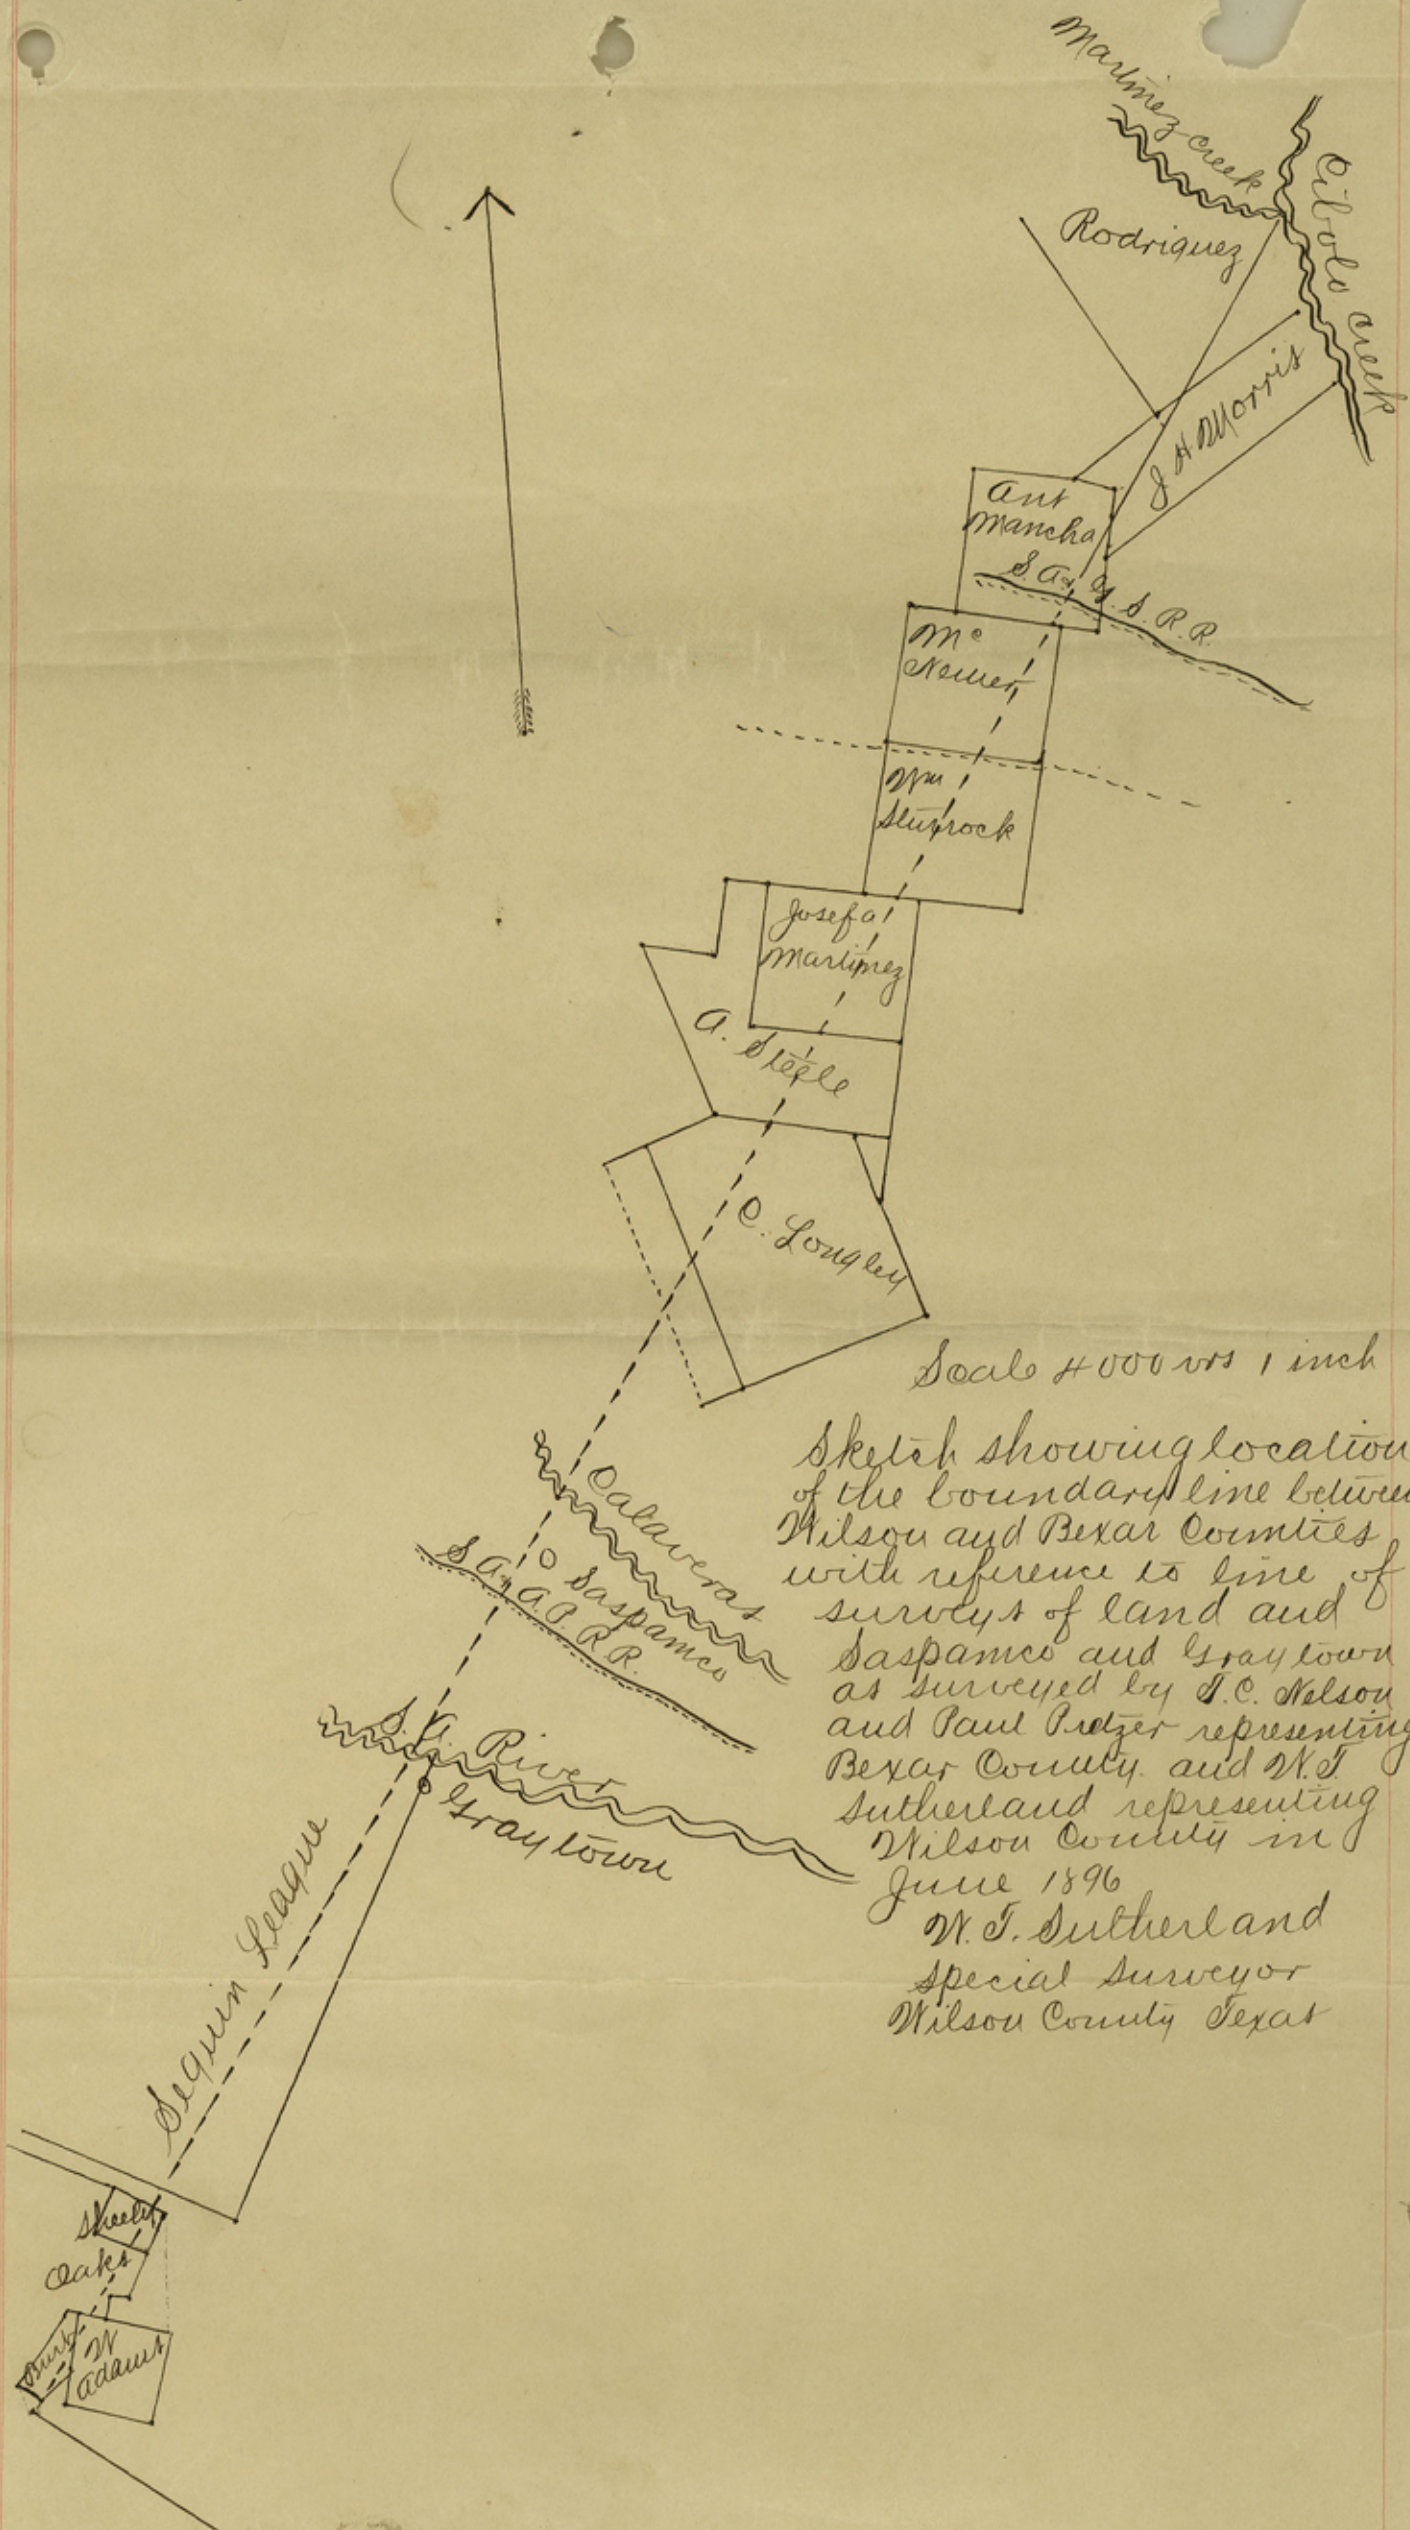 Martinez Creek
Cibolo Creek
Rodriquez
J H Morris
Ant
Mancha
S. A. & G. S. R. R.
Mc
Nemer
Wm
Josefa
Martinez
A. Steele
C. Longley
Scale 4000 vrs 1 inch
Calaveras
Saspamco
S. A. & A. P. R. R.
S. A. River
Graytown
Sketch showing location
of the boundary line between
Wilson and Bexar Counties
with reference to line of
surveys of land and
Saspamco and Graytown
as surveyed by T. C. Nelson
and Paul Pretzer representing
Bexar County. and W. T.
Sutherland representing
Wilson County in
June 1896
W. T. Sutherland
Special Surveyor
Wilson County Texas
Sequin League
Oaks
W
Adams